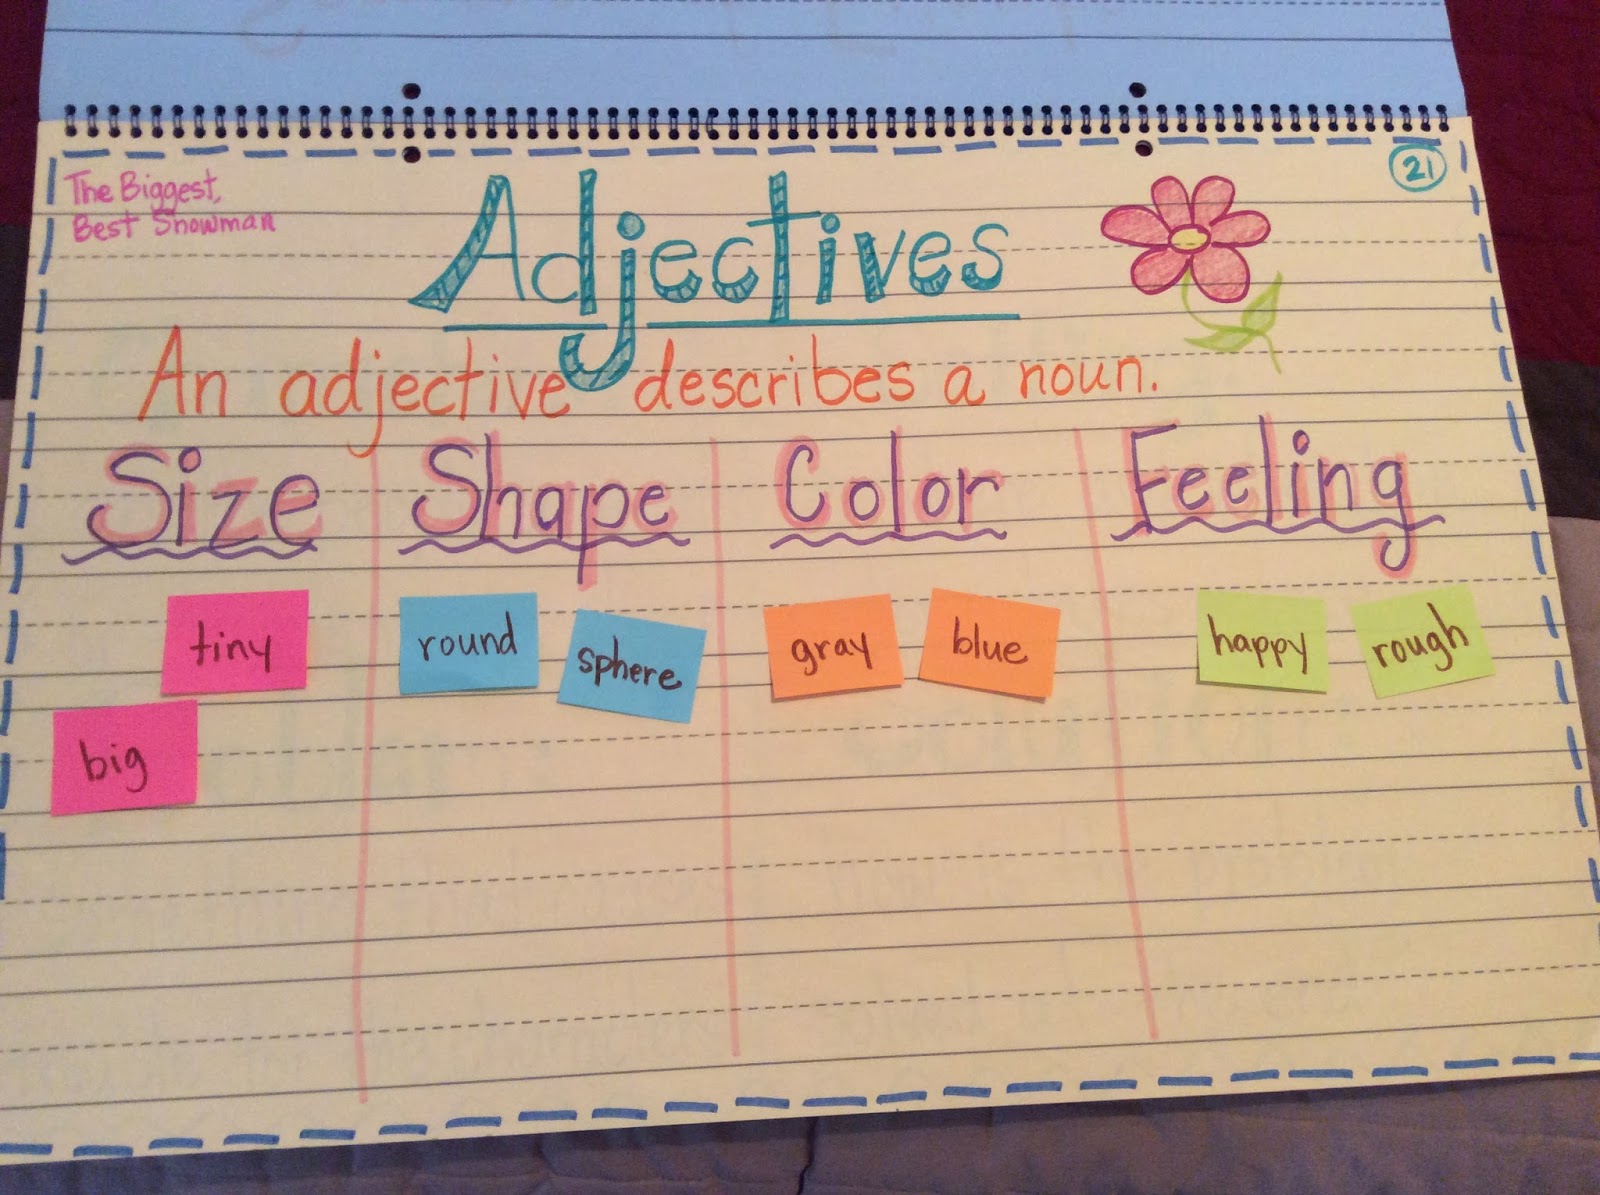 The Biggest,
Best Snowman
21
Adjectives
An adjective describes a noun.
Size Shape Color Feeling
tiny round sphere gray blue happy rough
big